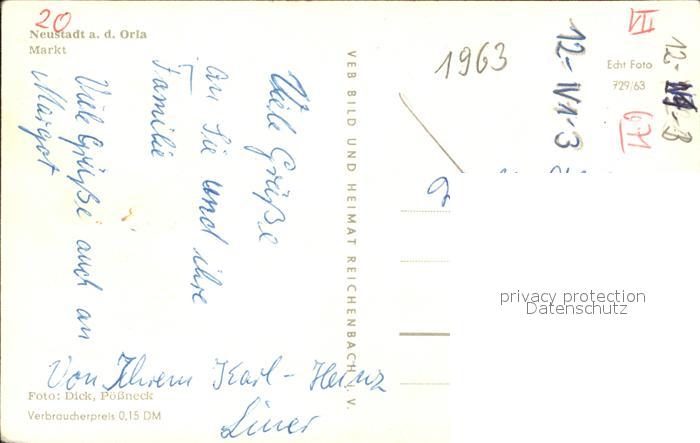 20
Neustadt a. d. Orla
Markt
Viele Grüße
an Sie und ihre
Familie
Viele Grüße auch an
Margot
Von Ihrem Karl-Heinz
Foto: Dick, Pößneck
Verbraucherpreis 0,15 DM
VEB BILD UND HEIMAT REICHENBACH I. V.
1963
VII
Echt Foto
729/63
671
privacy protection
Datenschutz